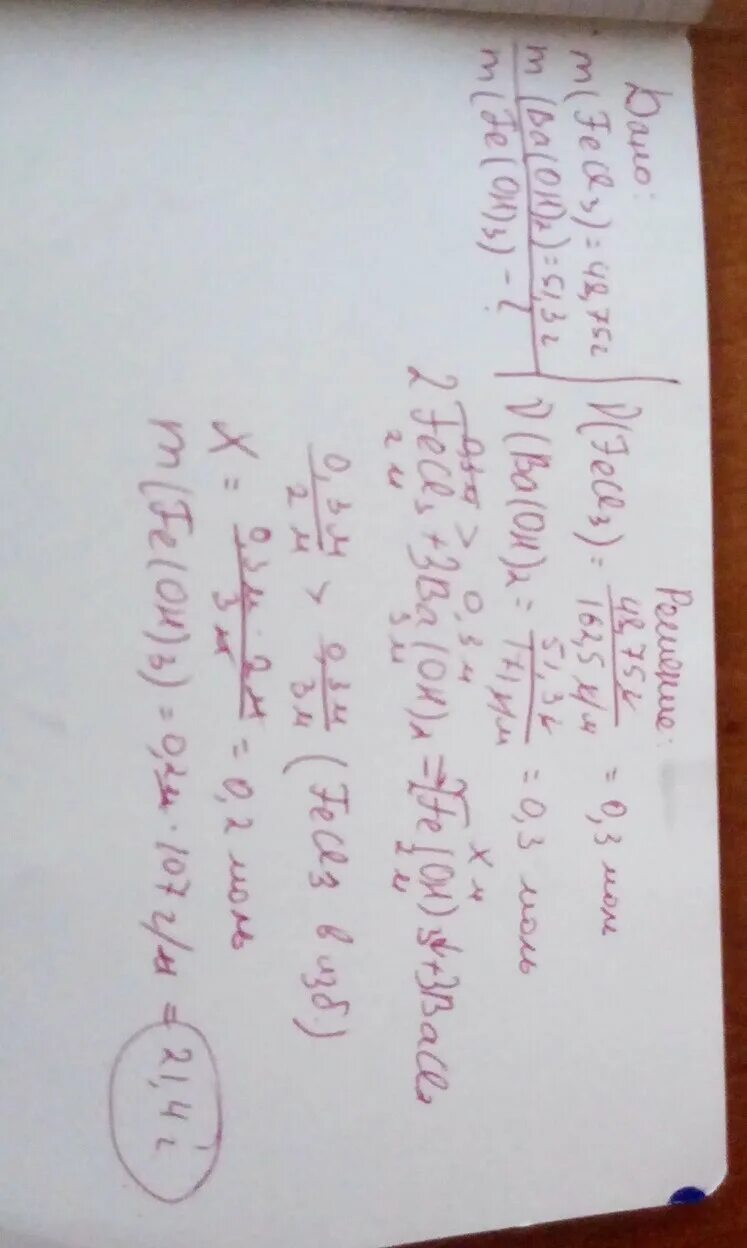 Дано:
m(FeCl3)=48,75г
m(Ba(OH)2)=51,3г
m(Fe(OH)3) - ?
Решение:
ν(FeCl3) = 48,75г / 162,5 г/м = 0,3 моль
ν(Ba(OH)2 = 51,3г / 171 г/м = 0,3 моль
0,3м > 0,3м x м
2FeCl3 + 3Ba(OH)2 = 2Fe(OH)3↓ + 3BaCl2
2 м 3 м 2 м
0,3м / 2 м > 0,3м / 3м (FeCl3 в изб.)
X = 0,3м · 2м / 3м = 0,2 моль
m(Fe(OH)3) = 0,2м · 107 г/м = 21,4 г